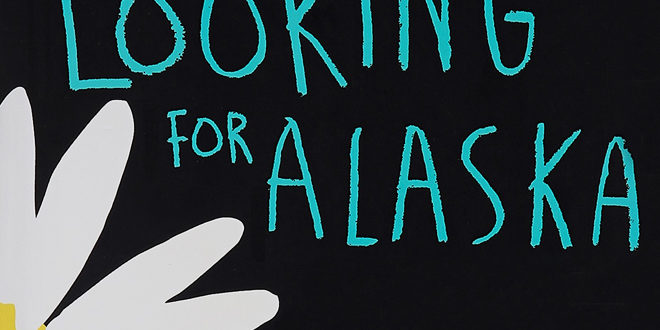 LOOKING
FOR ALASKA